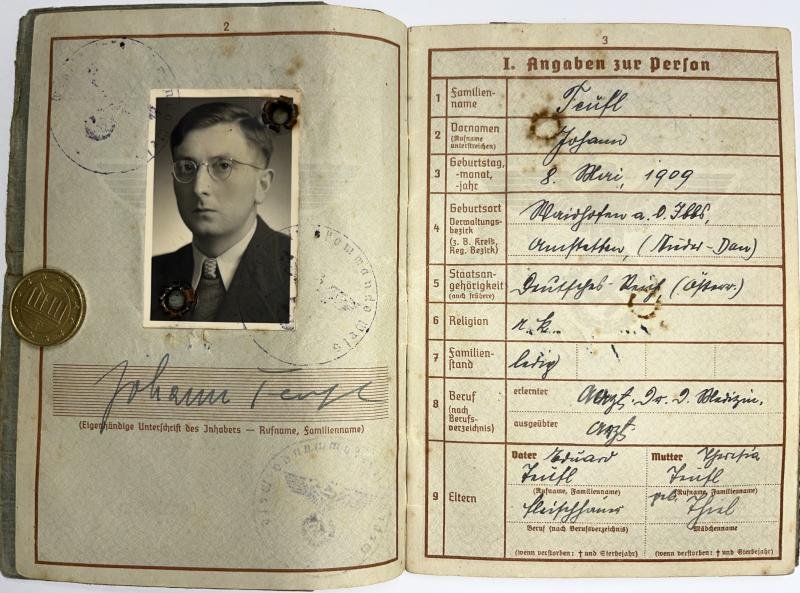 2
Johann Teufl
(Eigenhändige Unterschrift des Inhabers — Rufname, Familienname)
3
I. Angaben zur Person
1 Familien-
name
Teufl
2 Vornamen
(Rufname
unterstreichen)
Johann
3 Geburtstag,
-monat,
-jahr
8. Mai, 1909
4 Geburtsort
Verwaltungs-
bezirk
(z. B. Kreis,
Reg. Bezirk)
Waidhofen a. d. Ybbs,
Amstetten, (Nieder-Don)
5 Staatsan-
gehörigkeit
(auch frühere)
Deutsches Reich, (Österr.)
6 Religion
r. k.
7 Familien-
stand
ledig
8 Beruf
(nach
Berufs-
verzeichnis)
erlernter
Arzt. Dr. d. Medizin.
ausgeübter
Arzt.
9 Eltern
Vater Eduard
Teufl
(Rufname, Familienname)
Fleischhauer
Beruf (nach Berufsverzeichnis)
(wenn verstorben: † und Sterbejahr)
Mutter Theresia
Teufl
(Rufname, Familienname)
geb. Thiel
Mädchenname
(wenn verstorben: † und Sterbejahr)